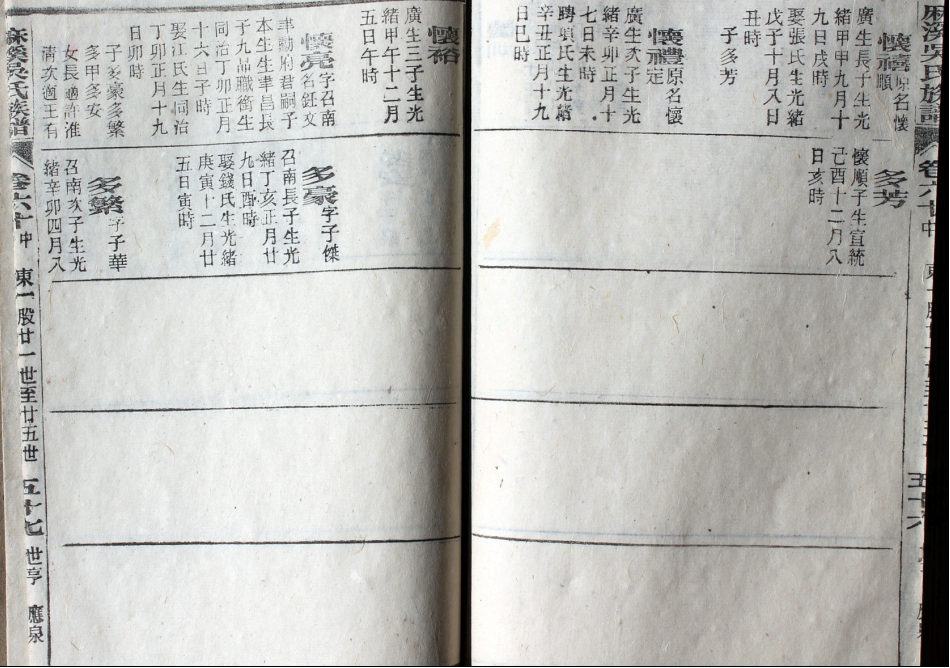 麻溪吳氏族譜
卷六十中
懷禧原名懷順
廣生長子生光
緒甲申九月十
九日戌時
娶張氏生光緒
戊子十月入日
丑時
子多芳
懷禮原名懷定
廣生次子生光
緒辛卯正月十
七日未時
聘項氏生光緒
辛丑正月十九
日巳時
多芳
懷順子生宣統
己酉十二月八
日亥時
懷裕
廣生三子生光
緒甲午十二月
五日午時
懷亮字召南名鈺文
聿勤府君嗣子
本生生聿昌長
子九品職銜生
同治丁卯正月
十六日子時
娶江氏生同治
丁卯正月十九
日卯時
子多豪多繁
多甲多安
女長適許淮
清次適王有
多豪字子傑
召南長子生光
緒丁亥正月廿
九日酉時
娶錢氏生光緒
庚寅十二月廿
五日寅時
多繁字子華
召南次子生光
緒辛卯四月入
麻溪吳氏族譜
卷六十中
東一股廿一世至廿五世
五十七
世亨
應泉